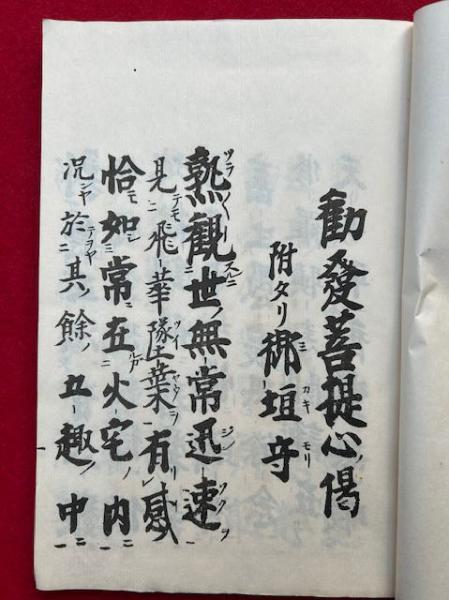 勸發菩提心偈
附タリ御垣守
熟觀世無常迅速
見飛華墜葉有感
恰如常在火宅內
況於其餘五趣中